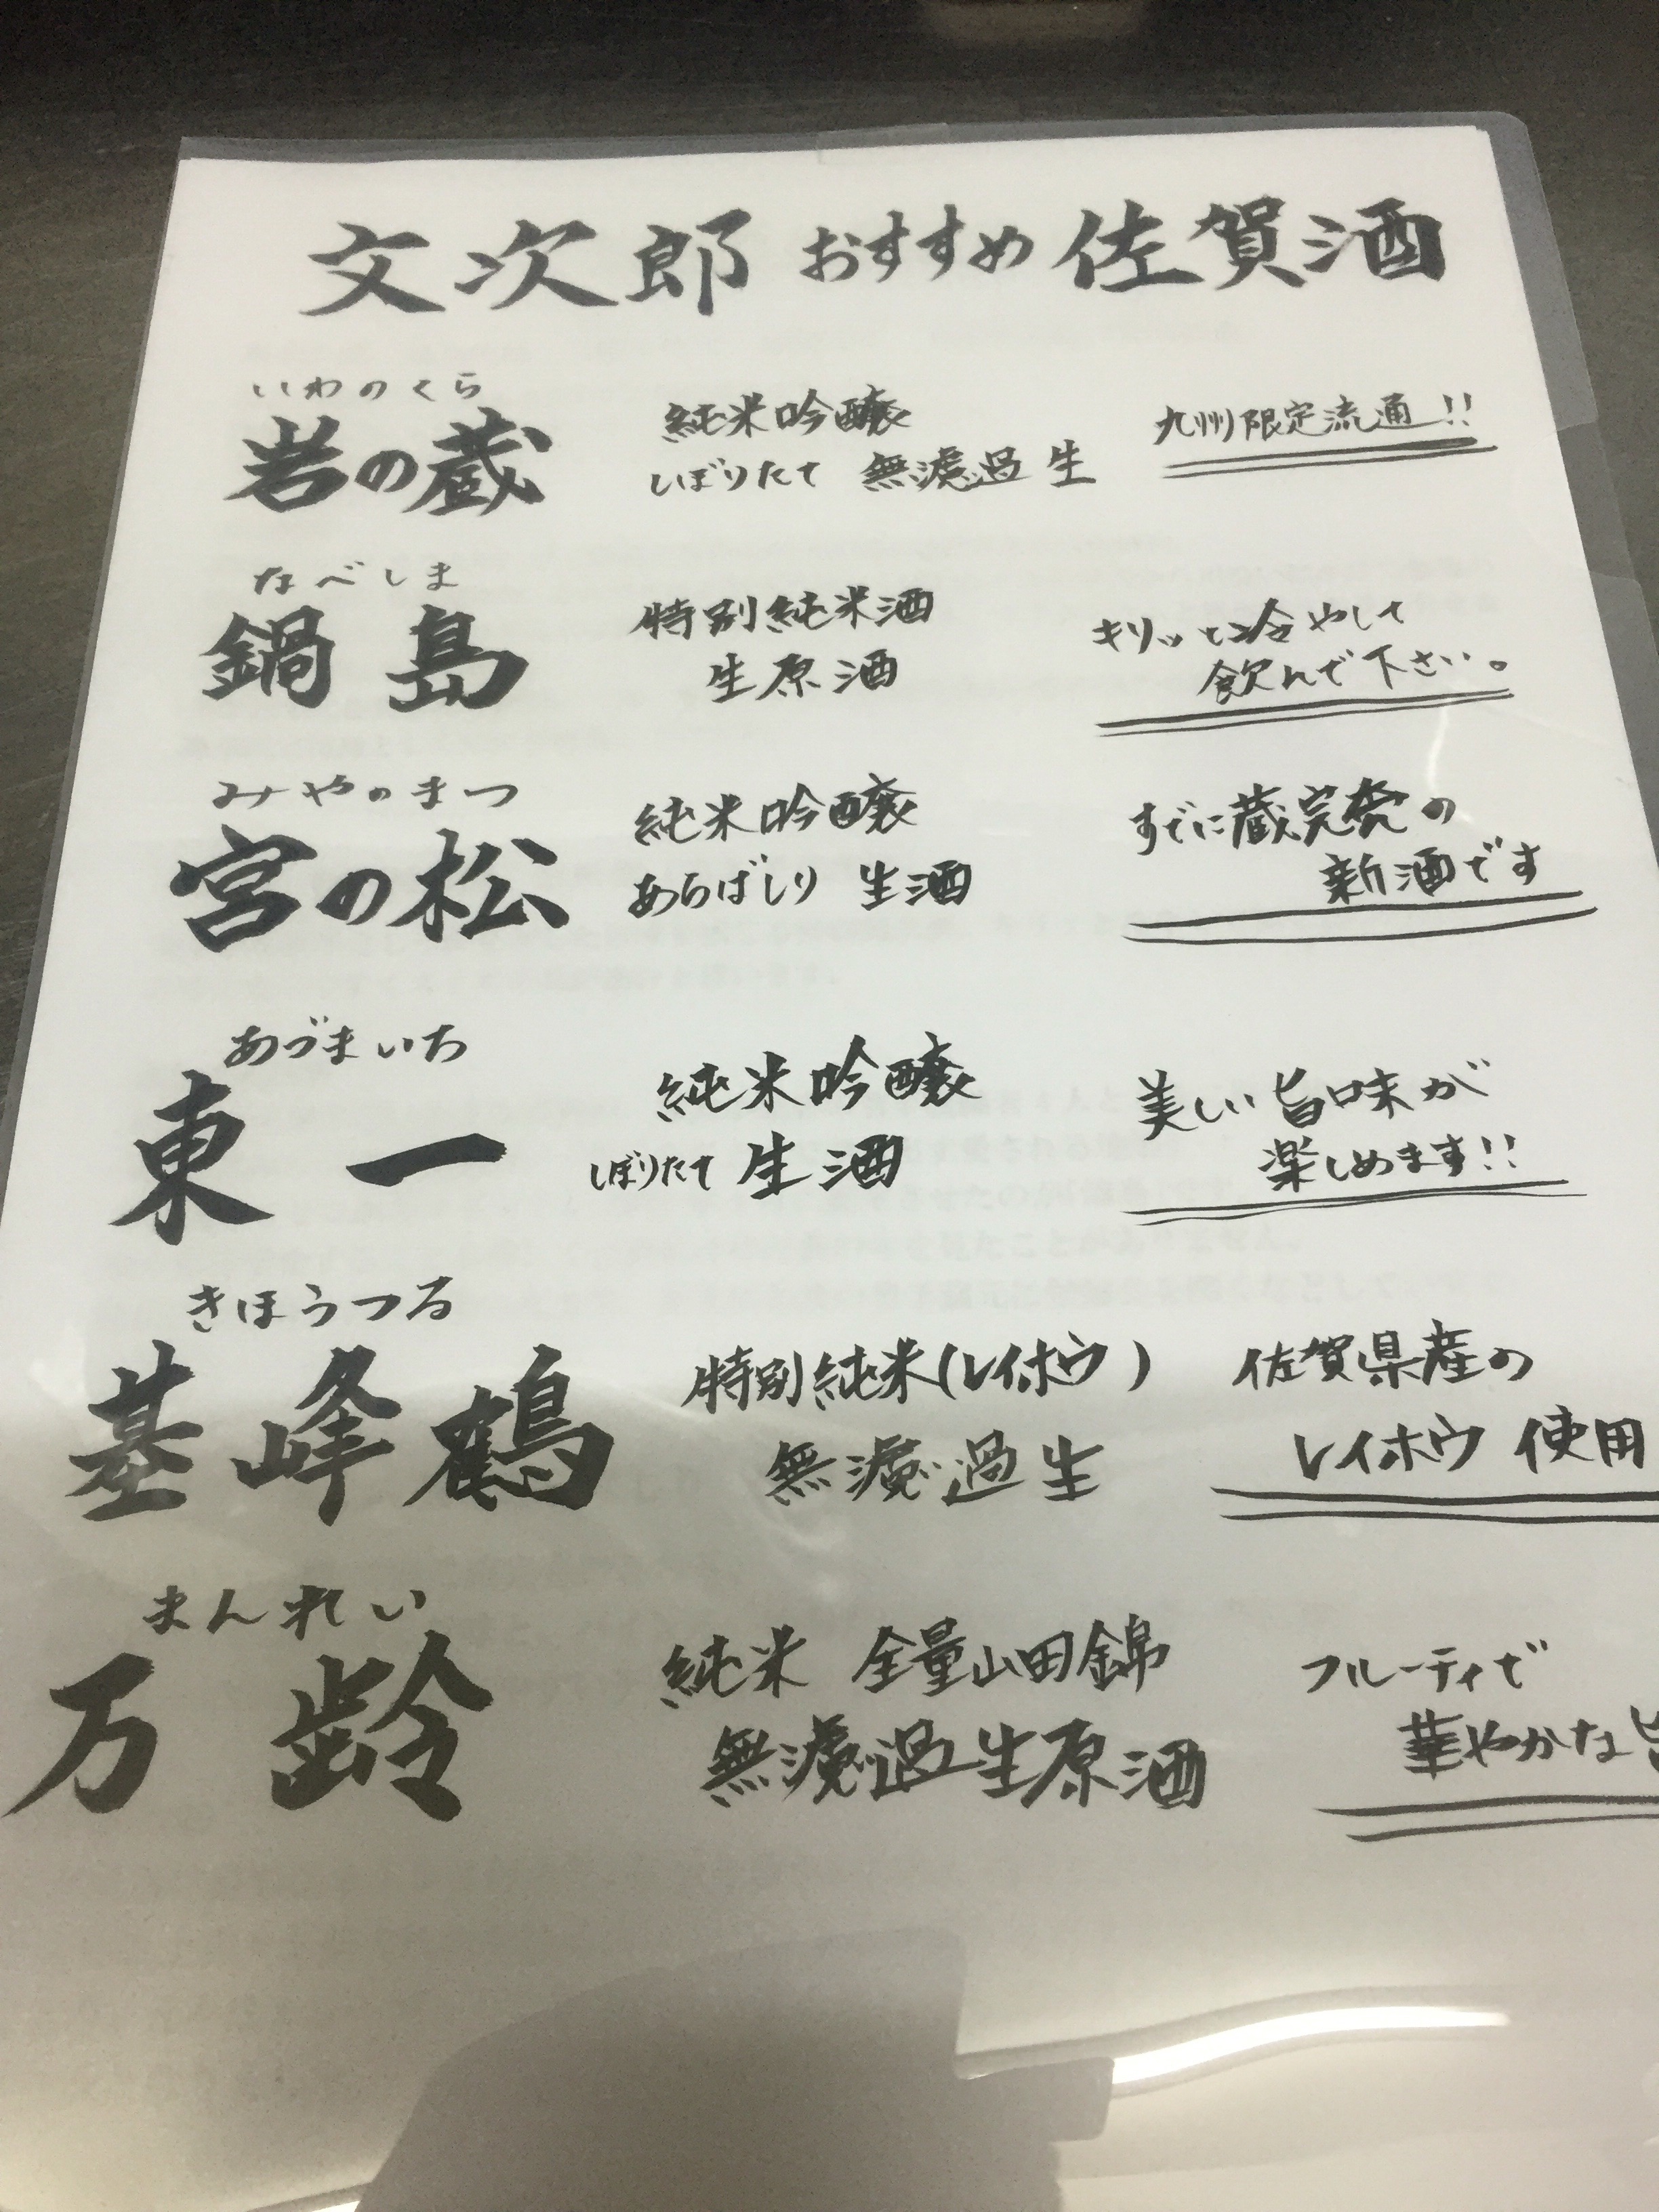 文次郎 おすすめ 佐賀酒
いわのくら
岩の蔵
純米吟醸
しぼりたて 無濾過生
九州限定流通!!
なべしま
鍋島
特別純米酒
生原酒
キリッと冷やして
飲んで下さい。
みやのまつ
宮の松
純米吟醸
あらばしり 生酒
すでに蔵完売の
新酒です
あづまいち
東一
純米吟醸
しぼりたて 生酒
美しい旨味が
楽しめます!!
きほうつる
基峰鶴
特別純米(レイホウ)
無濾過生
佐賀県産の
レイホウ 使用
まんれい
万齢
純米 全量山田錦
無濾過生原酒
フルーティで
華やかな